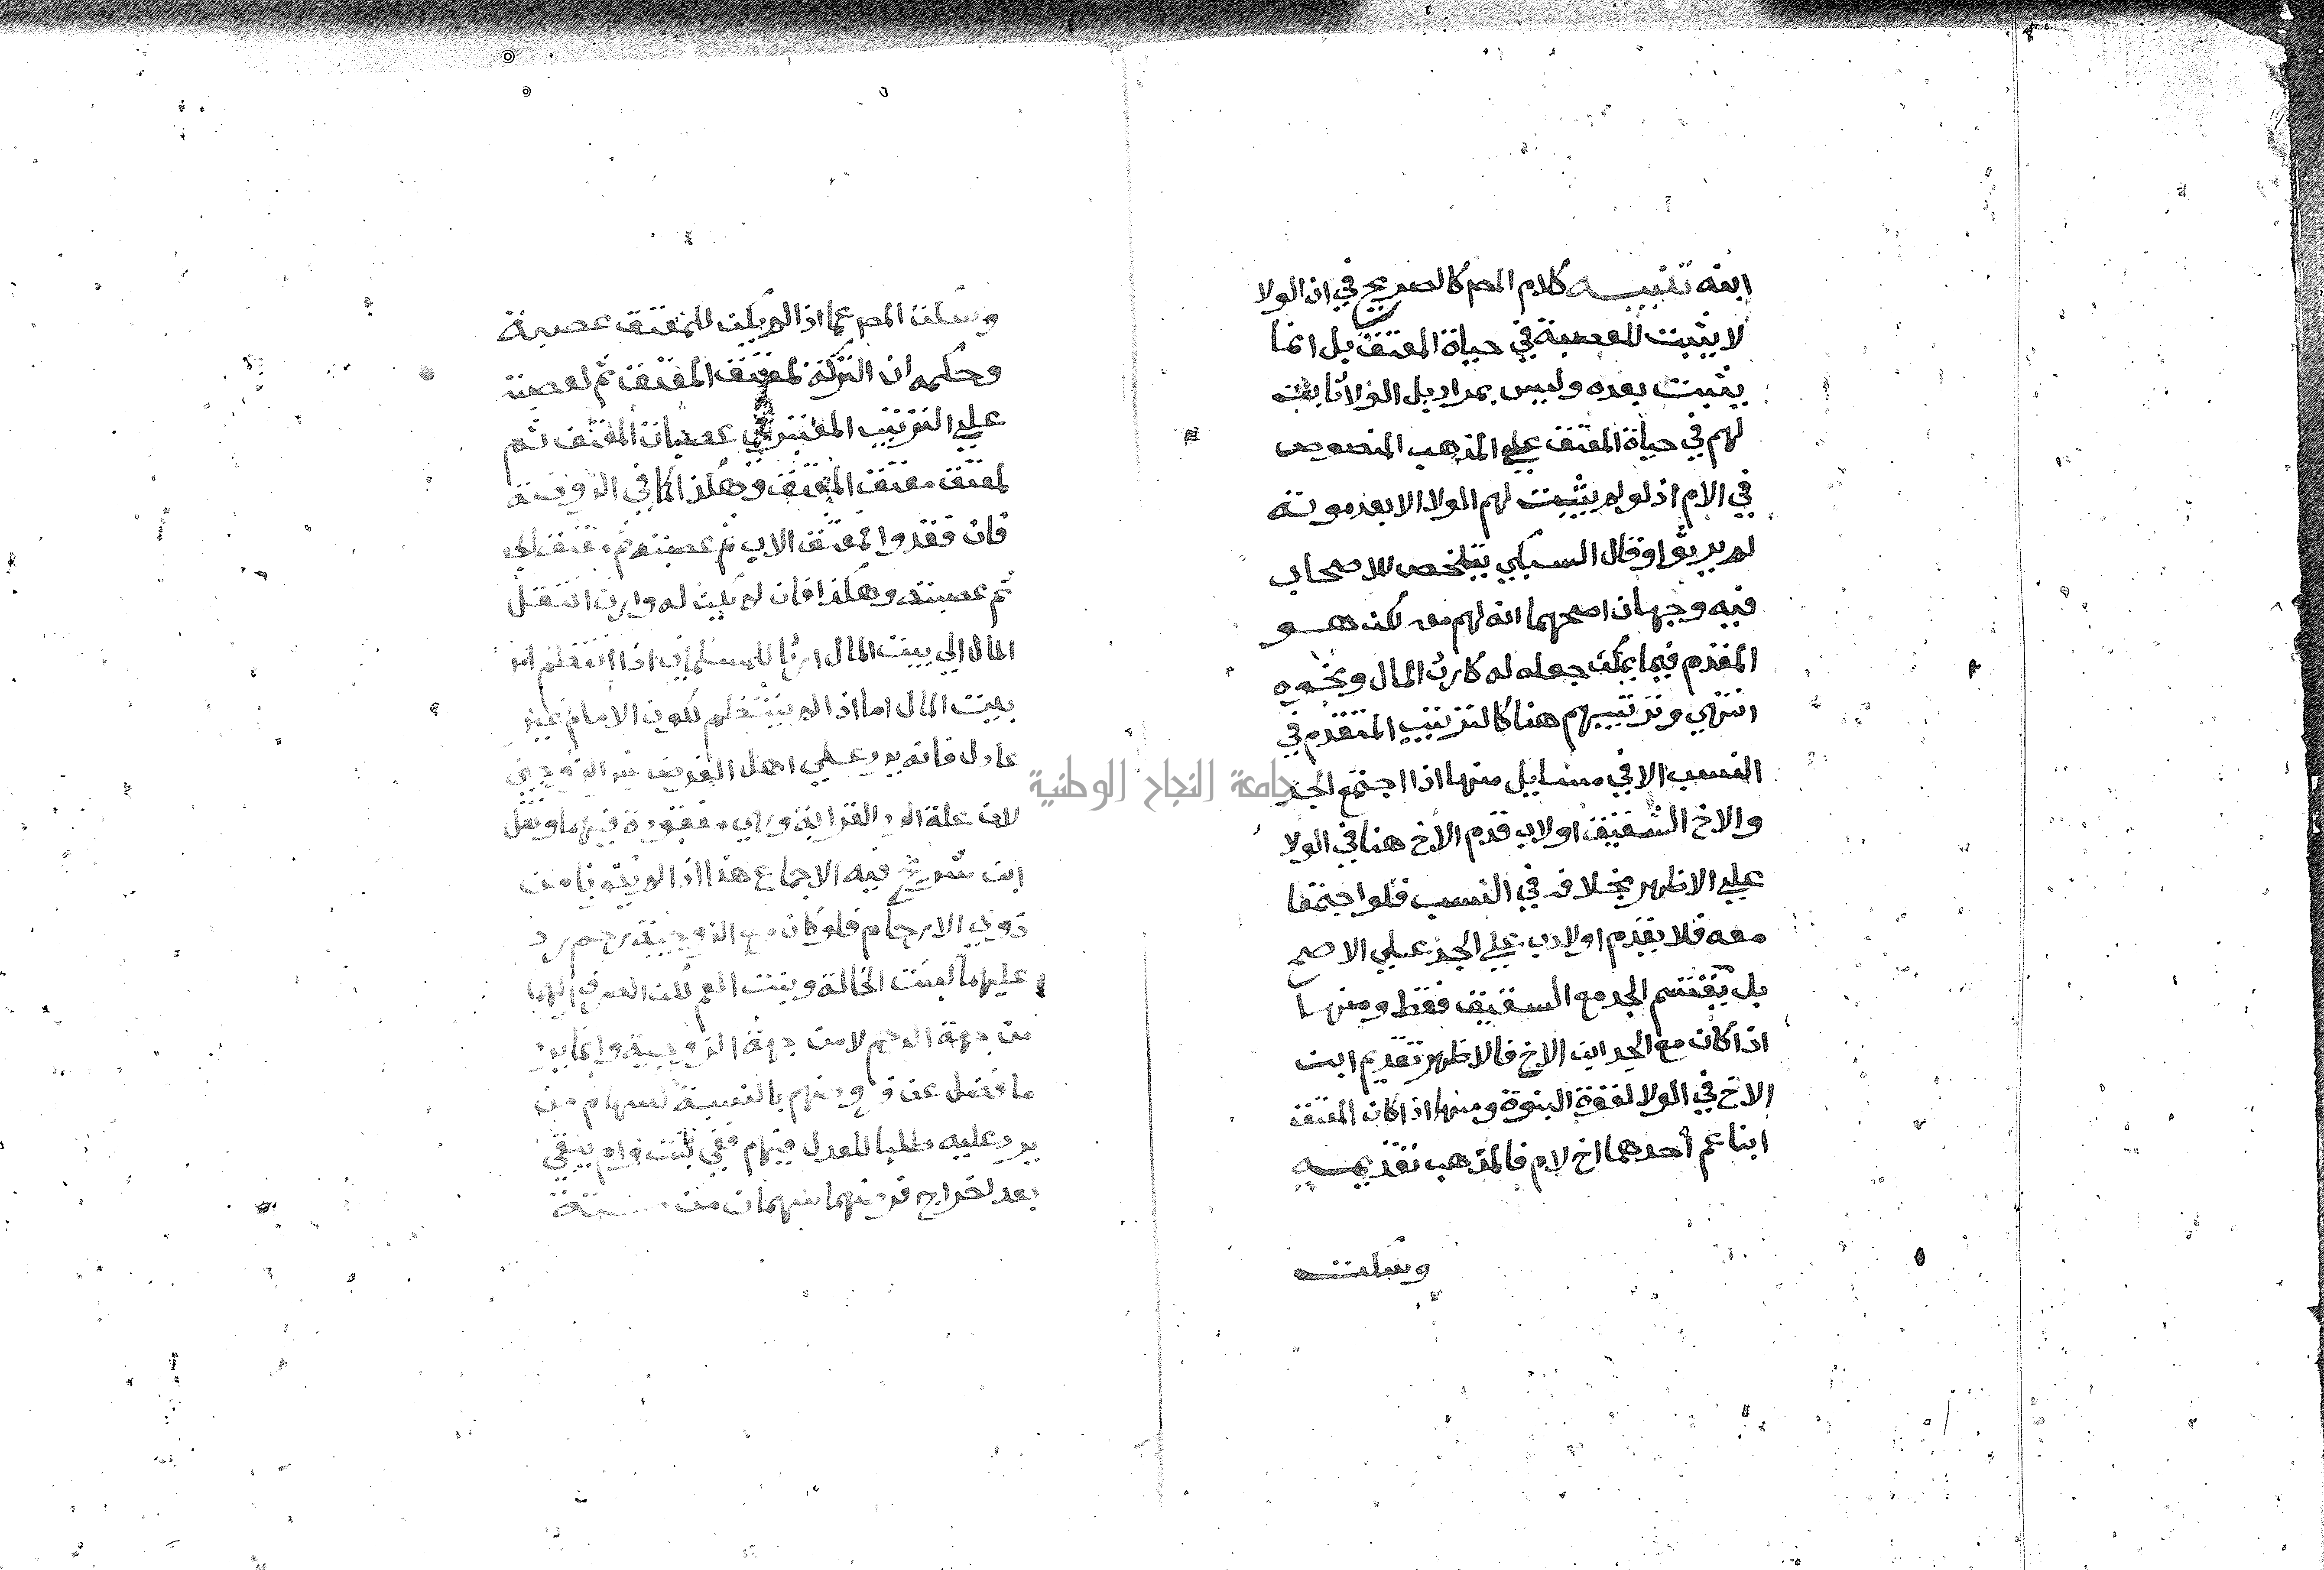 ابنه تنبيه كلام المص كالصريح في ان الولا
لا يثبت للعصبة في حياة المعتق بل انما
يثبت بعده وليس بمراد بل الولا ثابت
لهم في حياة المعتق علي المذهب المنصوص
في الام اذ لو لم يثبت لهم الولا الا بعد موته
لم يرثوا وقال السبكي يتلخص للاصحاب
فيه وجهان اصحهما انه لهم معه لكن هو
المقدم فيما يمكن جعله له كارث المال ونحوه
انتهي وترتيبهم هنا كالترتيب المتقدم في
النسب الا في مسايل منها اذا اجتمع الجد
والاخ الشقيق او لاب قدم الاخ هنا في الولا
علي الاظهر بخلافه في النسب فلو اجتمعا
معه فلا يقدم اولاد ب علي الجد علي الاصح
بل يقتسم الجد مع الشقيق فقط ومنها
اذا كان مع الجد ابن الاخ فالاظهر تقديم ابن
الاخ في الولا لقوة البنوة ومنها اذا كان المعتق
ابنا عم احدهما اخ لام فالمذهب تقديمه
وسكت
جامعة النجاح الوطنية
وسكت المص عما اذا لم يكن للمعتق عصبة
وحكمه ان التركة لمعتق المعتق ثم لعصبته
علي الترتيب المعتبر في عصبات المعتق ثم
لمعتق معتق المعتق وهكذا كما في الروضة
فان فقدوا فمعتق الاب ثم عصبته ثم معتق الجد
ثم عصبته وهكذا فان لم يكن له وارث انتقل
المال الي بيت المال ارثا للمسلمين اذا انتظم امر
بيت المال اما اذا لم ينتظم لكون الامام غير
عادل فانه يرد علي اهل الفرض غير الزوجين
لان علة الرد القرابة وهي مفقودة فيهما ونقل
ابن سريج فيه الاجماع هذا اذا لم يكونا من
ذوي الارحام فلو كان مع الزوجية رحم رد
عليهما كبنت الخالة وبنت العم لكن الصرف اليهما
من جهة الرحم لا من جهة الزوجية وانما يرد
ما فضل عن فروضهم بالنسبة لسهام من
يرد عليه طلبا للعدل فيهم ففي بنت وام يبقي
بعد اخراج فرضهما سهمان من ستة